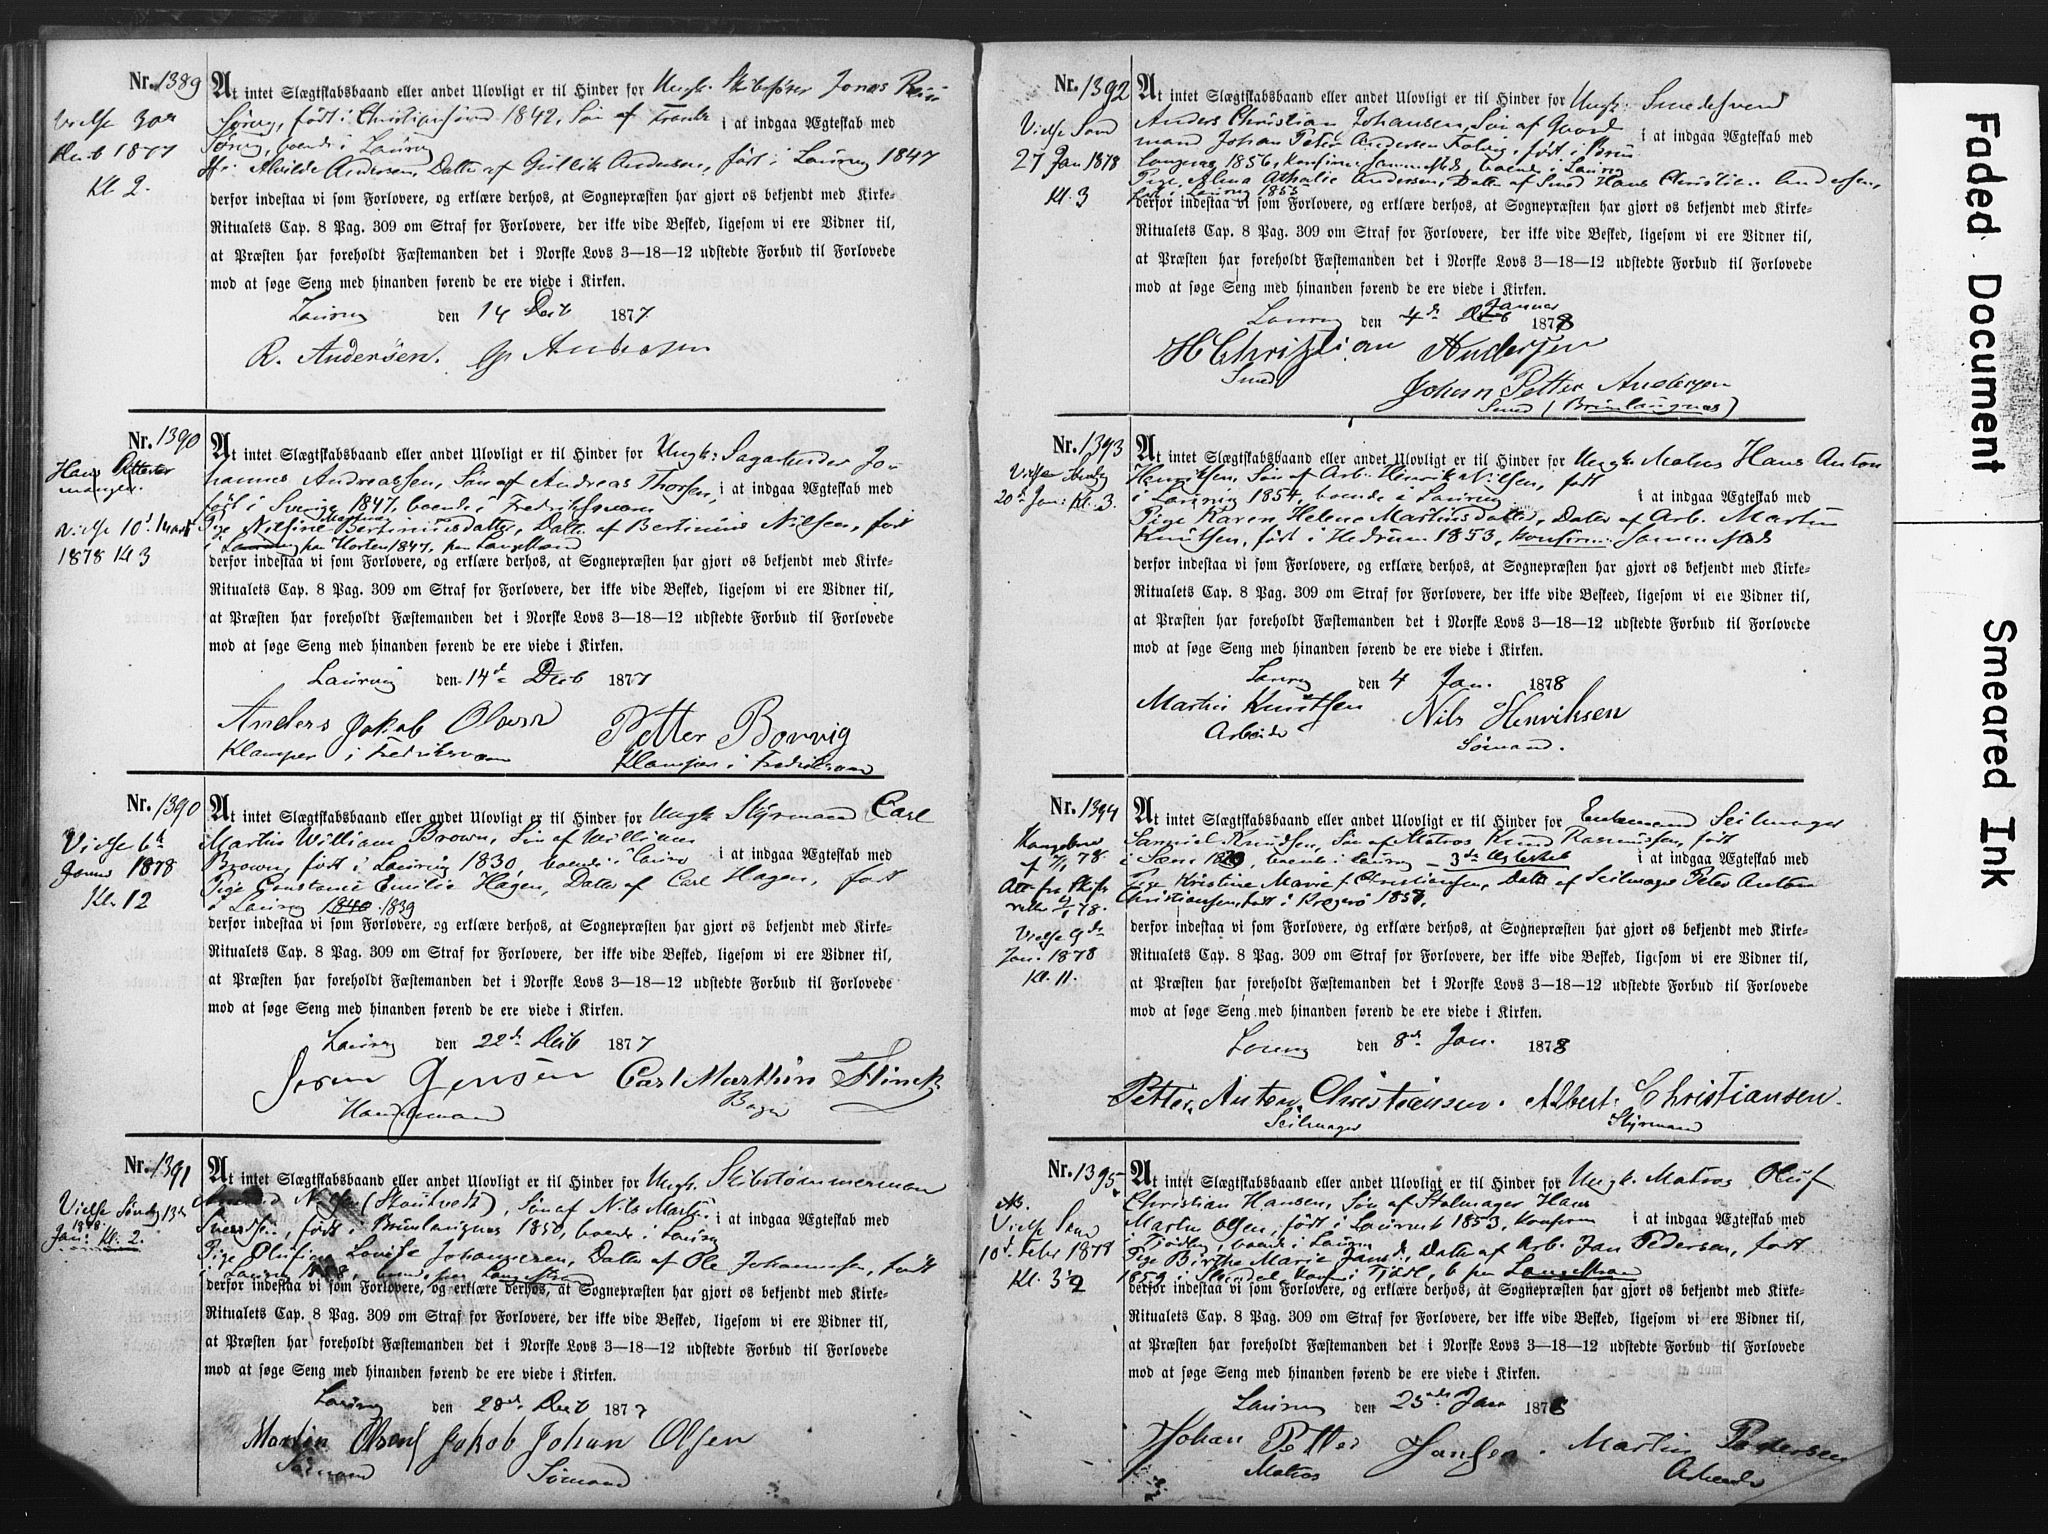 Nr. 1389
Vielse 30te
Decb 1877
Kl 2.
At intet Slægtskabsbaand eller andet Ulovligt er til Hinder for Ungk. Skibsfører Jonas
født i Christiansund 1842, Søn af i at indgaa Ægteskab med
boende i Laurvig
Alvilde Andersen, Datter af Gullik Andersen, født i Laurvig 1847
derfor indestaa vi som Forlovere, og erklære derhos, at Sognepræsten har gjort os bekjendt med Kirke-
Ritualets Cap. 8 Pag. 309 om Straf for Forlovere, der ikke vide Besked, ligesom vi ere Vidner til,
at Præsten har foreholdt Fæstemanden det i Norske Lovs 3—18—12 udstedte Forbud til Forlovede
mod at søge Seng med hinanden førend de ere viede i Kirken.
Laurvig den 14 Decb 1877.
R. Andersen. G. Andersen
Nr. 1390
Hans
mangler.
Vielse 10d Marts
1878 Kl 3
At intet Slægtskabsbaand eller andet Ulovligt er til Hinder for Ungk: Sagarbeider Jo-
hannes Andreassen, Søn af Andreas Thorsen, i at indgaa Ægteskab med
født i Sverige 1847, boende i Fredriksværn
Pige Nilsine Bertiniusdatter, Datter af Bertinius Nilsen, født
i Laurvig Horten 1847, paa Langestrand
derfor indestaa vi som Forlovere, og erklære derhos, at Sognepræsten har gjort os bekjendt med Kirke-
Ritualets Cap. 8 Pag. 309 om Straf for Forlovere, der ikke vide Besked, ligesom vi ere Vidner til,
at Præsten har foreholdt Fæstemanden det i Norske Lovs 3—18—12 udstedte Forbud til Forlovede
mod at søge Seng med hinanden førend de ere viede i Kirken.
Laurvig den 14de Decb 1877
Anders Jakob Olsen Petter Borvig
Klamper i Fredriksværn Klamper i Fredriksværn
Nr. 1390
Vielse 6te
Januar 1878
Kl. 12
At intet Slægtskabsbaand eller andet Ulovligt er til Hinder for Ungk Styrmand Carl
Martin William Brown, Søn af William
Brown, født i Laurvig 1830, boende i Laurv i at indgaa Ægteskab med
Pige Constance Emilie Hagen, Datter af Carl Hagen, født
i Laurvig 1840 1839
derfor indestaa vi som Forlovere, og erklære derhos, at Sognepræsten har gjort os bekjendt med Kirke-
Ritualets Cap. 8 Pag. 309 om Straf for Forlovere, der ikke vide Besked, ligesom vi ere Vidner til,
at Præsten har foreholdt Fæstemanden det i Norske Lovs 3—18—12 udstedte Forbud til Forlovede
mod at søge Seng med hinanden førend de ere viede i Kirken.
Laurvig den 22de Decb 1877
Jørgen Jensen Carl Marthin Flinck
Handelsmand Bager
Nr. 1391
Vielse Søndg 13de
Jan: 1878 Kl. 2.
At intet Slægtskabsbaand eller andet Ulovligt er til Hinder for Ungk. Skibstømmermand
Nilsen (Stautvedt), Søn af Nils Martin i at indgaa Ægteskab med
født i Brunlangnæs 1850, boende i Laurvig
Pige Olufine Lovise Johannesen, Datter af Ole Johannesen, født
i Laurvig boende paa Langestrand
derfor indestaa vi som Forlovere, og erklære derhos, at Sognepræsten har gjort os bekjendt med Kirke-
Ritualets Cap. 8 Pag. 309 om Straf for Forlovere, der ikke vide Besked, ligesom vi ere Vidner til,
at Præsten har foreholdt Fæstemanden det i Norske Lovs 3—18—12 udstedte Forbud til Forlovede
mod at søge Seng med hinanden førend de ere viede i Kirken.
Laurvig den 28de Decb 1877
Martin Olsen Jakob Johan Olsen
Sømand Sømand
Nr. 1392
Vielse Sønd
27 Jan 1878
Kl. 3
At intet Slægtskabsbaand eller andet Ulovligt er til Hinder for Ungk: Smedesvend
Anders Christian Johansen, Søn af Gaard-
mand Johan Peter Andersen født i Brun- i at indgaa Ægteskab med
langnæs 1856, konfirm: sammesteds, boende i Laurvig
Pige, Alma Athalie Andersen, Datter af Smed Hans Christian Andersen,
født i Laurvig 1855
derfor indestaa vi som Forlovere, og erklære derhos, at Sognepræsten har gjort os bekjendt med Kirke-
Ritualets Cap. 8 Pag. 309 om Straf for Forlovere, der ikke vide Besked, ligesom vi ere Vidner til,
at Præsten har foreholdt Fæstemanden det i Norske Lovs 3—18—12 udstedte Forbud til Forlovede
mod at søge Seng med hinanden førend de ere viede i Kirken.
Laurvig den 4de Decb Januar 1878
H Christian Andersen
Smed
Johan Petter Andersen
Smed (Brunlaugnæs)
Nr. 1393
Vielse Søndg
20de Jan: Kl. 3.
At intet Slægtskabsbaand eller andet Ulovligt er til Hinder for Ungk. Matros Hans Anton
Henriksen, Søn af Arb. Henrik Nilsen, født
i Laurvig 1854, boende i Laurvig i at indgaa Ægteskab med
Pige Karen Helene Martinsdatter, Datter af Arb. Martin
Knutsen, født i Hedrum 1853, konfirm: sammesteds
derfor indestaa vi som Forlovere, og erklære derhos, at Sognepræsten har gjort os bekjendt med Kirke-
Ritualets Cap. 8 Pag. 309 om Straf for Forlovere, der ikke vide Beskeed, ligesom vi ere Vidner til,
at Præsten har foreholdt Fæstemanden det i Norske Lovs 3—18—12 udstedte Forbud til Forlovede
mod at søge Seng med hinanden førend de ere viede i Kirken.
Laurvig den 4 Jan. 1878
Martin Knutsen Nils Henriksen
Arbeider Sømand.
Nr. 1394
af 7/1 78.
Att. fra Skifte-
retten 4/1 78.
Vielse 9de
Jan. 1878
Kl. 11.
At intet Slægtskabsbaand eller andet Ulovligt er til Hinder for Enkemand Seilmager
Samuel Knudsen, Søn af Matros Knud Rasmussen, født
i Sæm boende i Laurvig – 3die Ægteskab i at indgaa Ægteskab med
Pige Kristine Marie Christiansen, Datter af Seilmager Peter Anton
Christiansen, født i Kragerø
derfor indestaa vi som Forlovere, og erklære derhos, at Sognepræsten har gjort os bekjendt med Kirke-
Ritualets Cap. 8 Pag. 309 om Straf for Forlovere, der ikke vide Besked, ligesom vi ere Vidner til,
at Præsten har foreholdt Fæstemanden det i Norske Lovs 3—18—12 udstedte Forbud til Forlovede
mod at søge Seng med hinanden førend de ere viede i Kirken.
Laurvig den 8de Jan. 1878
Petter Anton Christiansen. Albert Christiansen.
Seilmager Styrmand
Nr. 1395
Vielse Sønd
10d Febr 1878
Kl. 3½
At intet Slægtskabsbaand eller andet Ulovligt er til Hinder for Ungk. Matros Oluf
Christian Hansen, Søn af Stolmager Hans
Martin Olsen, født i Laurvik 1853, konfirm i at indgaa Ægteskab med
i Tjødling, boende i Laurvig
Pige Birthe Marie Jansd., Datter af Arb. Jan Pedersen, født
1859 i konf i Tjødl, b paa Langestrand
derfor indestaa vi som Forlovere, og erklære derhos, at Sognepræsten har gjort os bekjendt med Kirke-
Ritualets Cap. 8 Pag. 309 om Straf for Forlovere, der ikke vide Besked, ligesom vi ere Vidner til,
at Præsten har foreholdt Fæstemanden det i Norske Lovs 3—18—12 udstedte Forbud til Forlovede
mod at søge Seng med hinanden førend de ere viede i Kirken.
Laurvig den 25de Jan 1878
Johan Petter Jansen. Martin Pedersen
Matros Arbeider
Faded Document
Smeared Ink